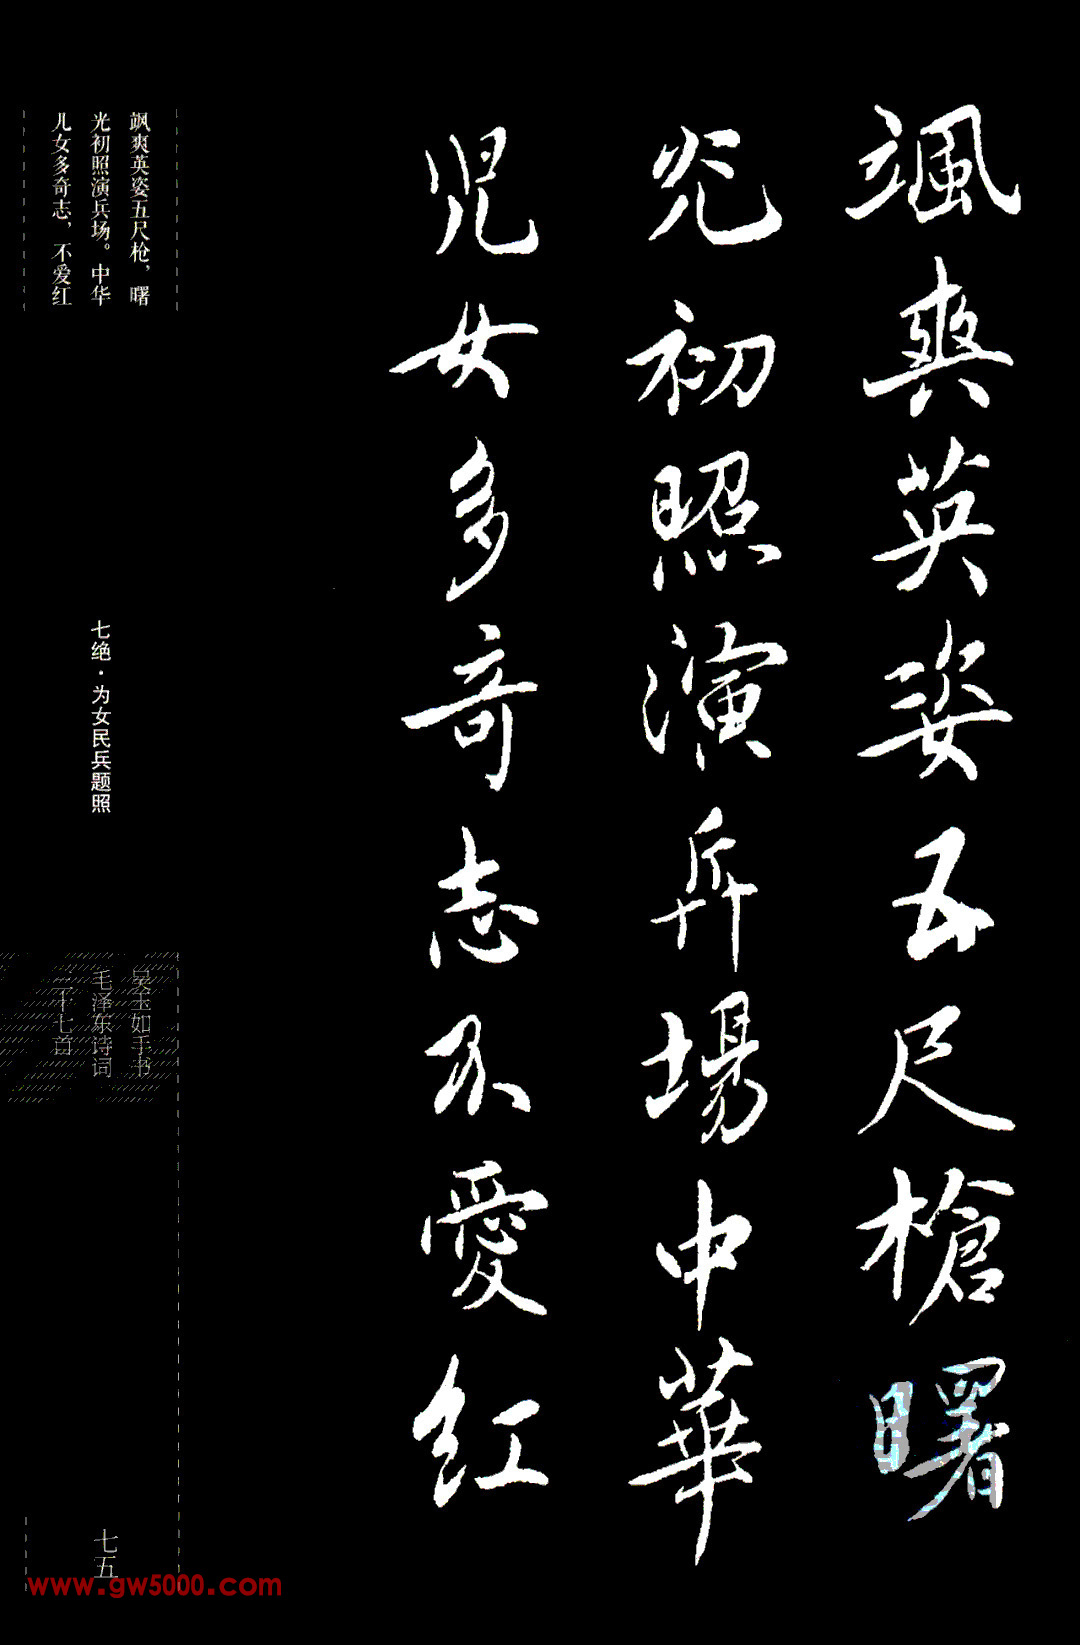 颯爽英姿五尺槍曙
光初照演兵場中華
児女多奇志不愛红
飒爽英姿五尺枪，曙
光初照演兵场。中华
儿女多奇志，不爱红
七绝·为女民兵题照
吴玉如手书
毛泽东诗词
二十七首
七五
www.gw5000.com